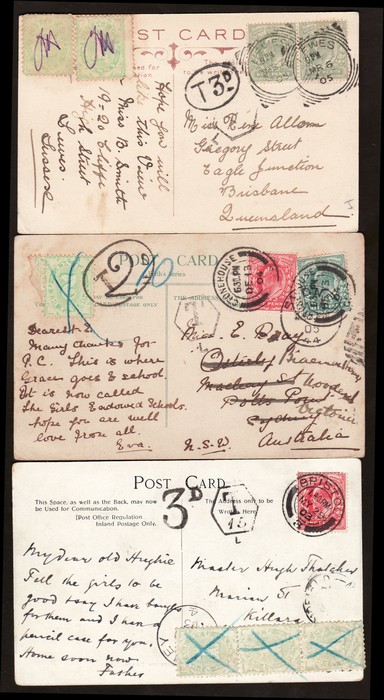 POST CARD
T 3D
LEWES
MR 6
05
Hope you will
like this View
Miss B. Smith
19-20 Cliffe
High Street
Lewes.
Sussex
Miss
Allom
Gregory Street
Eagle Junction
Brisbane
Queensland
T
L
POST CARD
T 2D
10
THE ADDRESS
STONEHOUSE
6.30 PM
DE 13
T
Dearest E
Many thanks for
P.C. This is where
Grace goes to school.
It is now called
The Girls Endowed Schools.
hope you are well
love from all
Eva.
Miss E. Bray
Potts Point
Sydney
Victoria
N.S.W.
Australia
POST CARD
This Space, as well as the Back, may now
be Used for Communication.
[Post Office Regulation
Inland Postage Only.
The Address only to be
Written Here.
3D
T
15
L
BRISTOL
My dear old Hughie
Tell the girls to be
good
I have bought
for them and I have a
pencil case for you.
Home soon now
Father
Master Hugh Thatcher
Marian St
Killara